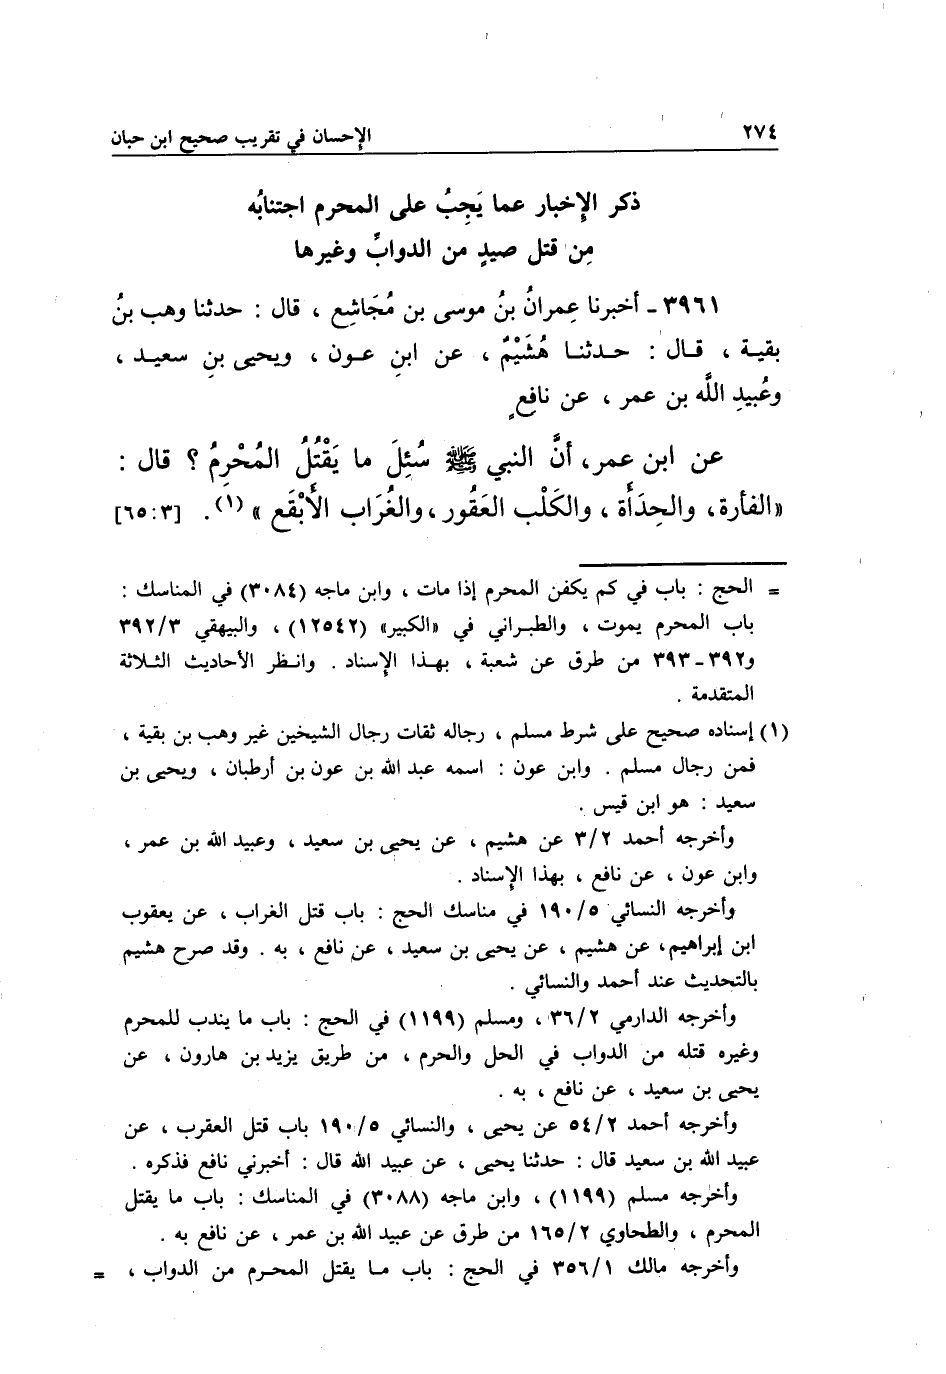 ٢٧٤ الإحسان في تقريب صحيح ابن حبان
ذكر الإخبار عما يَجِبُ على المحرم اجتنابُه
مِن قتل صيدٍ من الدوابِّ وغيرها
٣٩٦١ ـ أخبرنا عِمرانُ بنُ موسى بن مُجَاشِع ، قال : حدثنا وهب بنُ
بقية ، قـال : حـدثنـا هُشَيْمٌ ، عن ابنِ عـون ، ويحيى بنِ سعيـد ،
وعُبيدِ اللَّه بن عمر ، عن نافعٍ
عن ابن عمر، أنَّ النبي ﷺ سُئِلَ ما يَقْتُلُ المُحْرِمُ ؟ قال :
«الفأرة، والحِدَأَة ، والكَلْب العَقُور ، والغُرَاب الأَبْقَع »(١). [٦٥:٣]
= الحج : باب في كم يكفن المحرم إذا مات ، وابن ماجه (٣٠٨٤) في المناسك :
باب المحرم يموت ، والطبـراني في «الكبير» (١٢٥٤٢) ، والبيهقي ٣٩٢/٣
و٣٩٢ـ٣٩٣ من طرق عن شعبة ، بهـذا الإسناد . وانـظر الأحاديث الثـلاثة
المتقدمة .
(١) إسناده صحيح على شرط مسلم ، رجاله ثقات رجال الشيخين غير وهب بن بقية ،
فمن رجال مسلم . وابن عون : اسمه عبد الله بن عون بن أرطبان ، ويحيى بن
سعيد : هو ابن قيس .
وأخرجه أحمد ٣/٢ عن هشيم ، عن يحيى بن سعيد ، وعبيد الله بن عمر ،
وابن عون ، عن نافع ، بهذا الإسناد .
وأخرجه النسائي ١٩٠/٥ في مناسك الحج : باب قتل الغراب ، عن يعقوب
ابن إبراهيم، عن هشيم ، عن يحيى بن سعيد ، عن نافع ، به . وقد صرح هشيم
بالتحديث عند أحمد والنسائي .
وأخرجه الدارمي ٣٦/٢ ، ومسلم (١١٩٩) في الحج : باب ما يندب للمحرم
وغيره قتله من الدواب في الحل والحرم ، من طريق يزيد بن هارون ، عن
يحيى بن سعيد ، عن نافع ، به .
وأخرجه أحمد ٥٤/٢ عن يحيى ، والنسائي ١٩٠/٥ باب قتل العقرب ، عن
عبيد الله بن سعيد قال : حدثنا يحيى ، عن عبيد الله قال : أخبرني نافع فذكره .
وأخرجه مسلم (١١٩٩) ، وابن ماجه (٣٠٨٨) في المناسك : باب ما يقتل
المحرم ، والطحاوي ١٦٥/٢ من طرق عن عبيد الله بن عمر ، عن نافع به .
وأخرجه مالك ٣٥٦/١ في الحج : باب مـا يقتل المحـرم من الدواب ، =